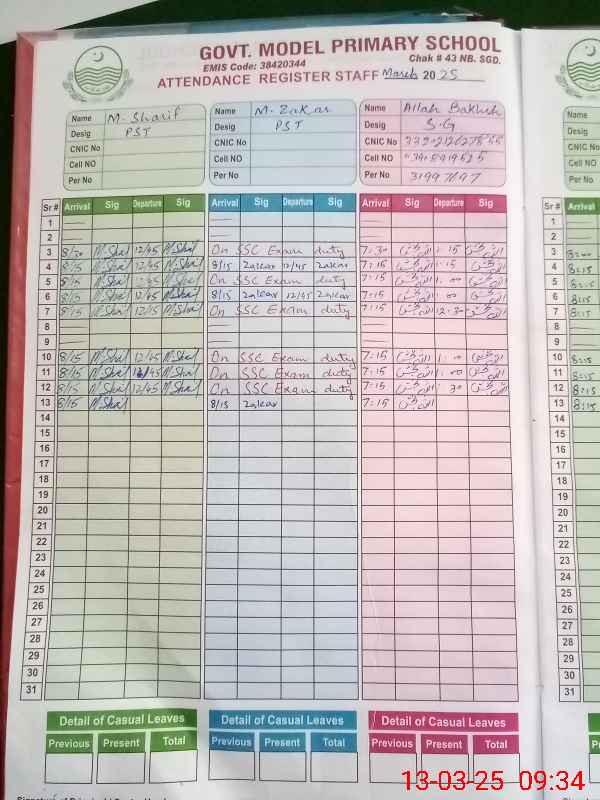 GOVT. MODEL PRIMARY SCHOOL
EMIS Code: 38420344 Chak # 43 NB. SGD.
ATTENDANCE REGISTER STAFF March 2025
Name M. Sharif Name M. Zakar Name Allah Bakhsh
Desig PST Desig PST Desig S.G
CNIC No CNIC No CNIC No
Cell NO Cell NO Cell NO
Per No Per No Per No 31997697
Sr # Arrival Sig Departure Sig Arrival Sig Departure Sig Arrival Sig Departure Sig Sr # Arrival
1 1
2 2
3 8/30 M.Shaf 12/45 M.Shaf On SSC Exam duty 7:30 1:15 3 8:00
4 8/15 M.Shaf 12/45 M.Shaf 8/15 Zakar 12/45 Zakar 7:15 1:15 4 8:15
5 8/15 M.Shaf 12/45 M.Shaf On SSC Exam duty 7:15 1:00 5 8:15
6 8/15 M.Shaf 12/45 M.Shaf 8/15 Zakar 12/45 Zakar 7:15 1:00 6 8:15
7 8/15 M.Shaf 12/15 M.Shaf On SSC Exam duty 7:15 12:30 7 8:15
8 8
9 9
10 8/15 M.Shaf 12/45 M.Shaf On SSC Exam duty 7:15 1:00 10 8:15
11 8/15 M.Shaf 12/45 M.Shaf On SSC Exam duty 7:15 1:00 11 8:15
12 8/15 M.Shaf 12/45 M.Shaf On SSC Exam duty 7:15 1:30 12 8:15
13 8/15 M.Shaf 8/15 Zakar 7:15 13 8:15
14 14
15 15
16 16
17 17
18 18
19 19
20 20
21 21
22 22
23 23
24 24
25 25
26 26
27 27
28 28
29 29
30 30
31 31
Detail of Casual Leaves Detail of Casual Leaves Detail of Casual Leaves
Previous Present Total Previous Present Total Previous Present Total
13-03-25 09:34